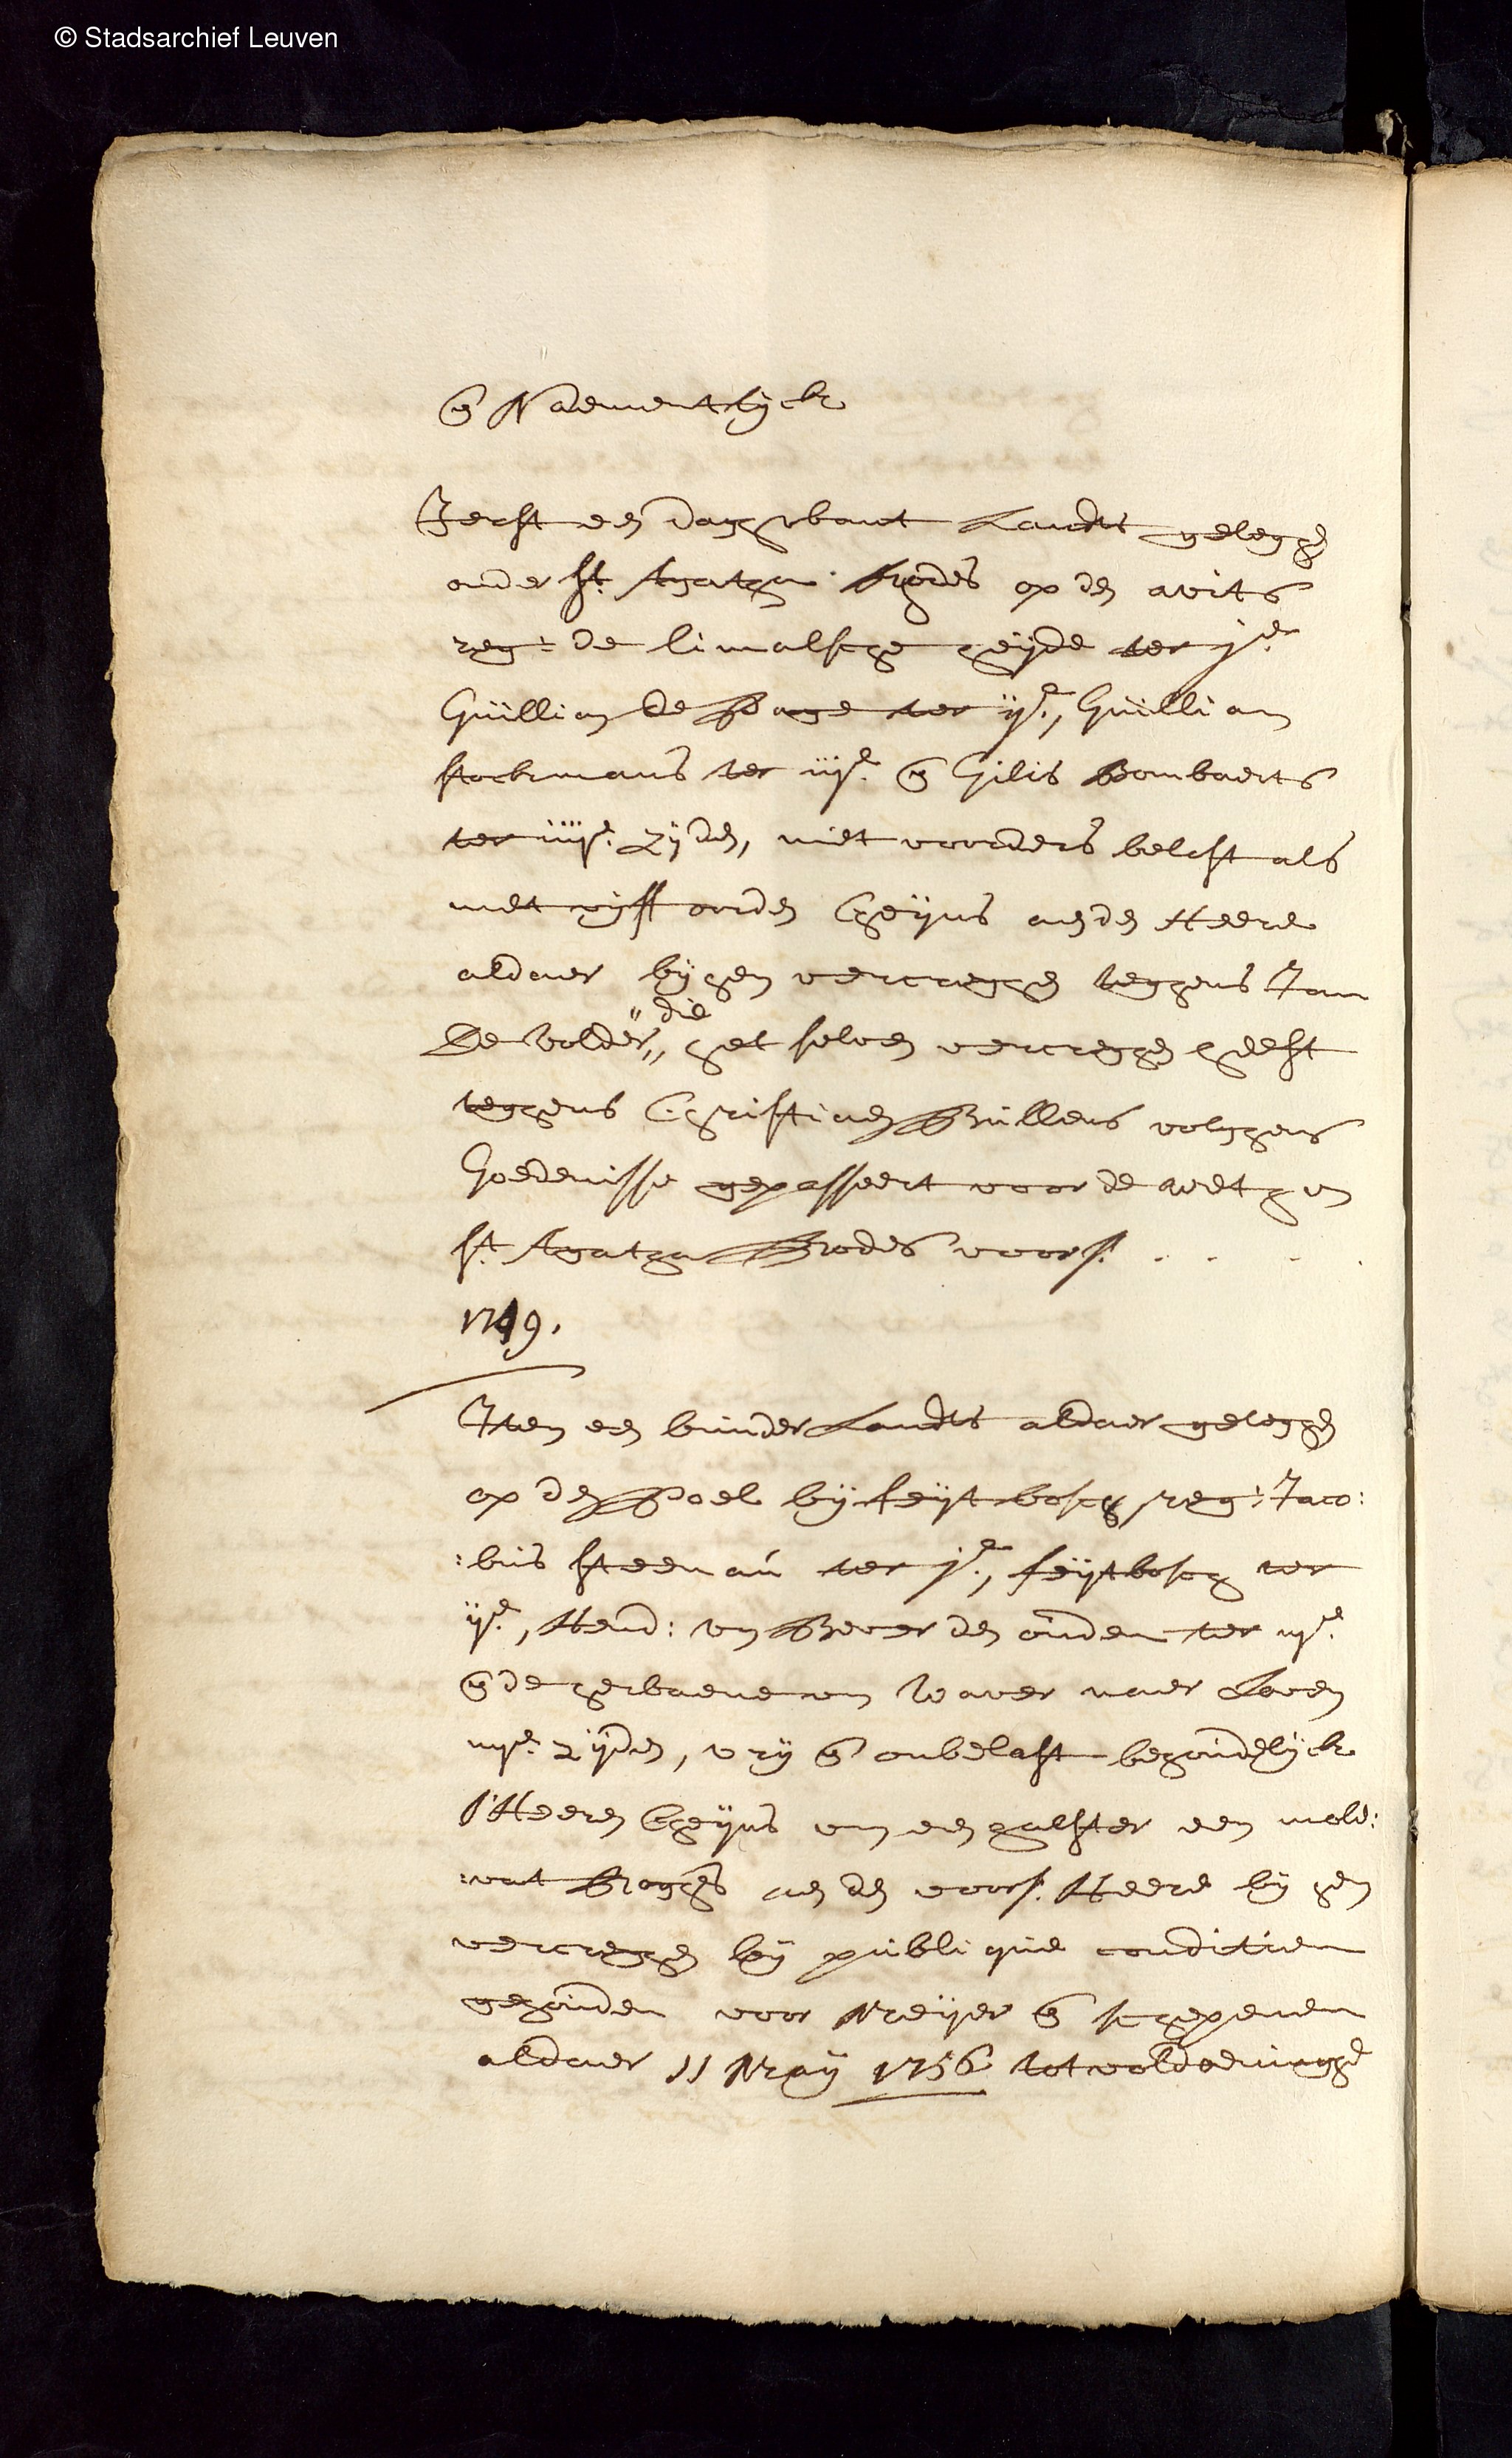 © Stadsarchief Leuven
en Naementlijck
Ierst een daghwant Landts gelegen
onder St. Agatha Rhodes op den
reg: de limalsche heijde ter je.
Guilliam de Page ter ije., Guilliam
stockmans ter iije. en Gilis Bombaerts
ter iiije. zijden, niet voorders belast als
met vijff oorden Cheijns aen den Heere
aldaer bij hem vercregen teghens Jan
De Volder,, die het selven vercregen heeft
teghens Christiaen Bullens volghens
Goedenisse gepasseert voor de weth van
St. Agatha Rodes voors. . . . .
1749.
Item een bunder Landts aldaer gelegen
op den Poel bij feijtbosch, reg: Jaco:
:bus steenau ter je., feijtbosch ter
ije., Hend: van Bever den ouden ter iije.
en de herbaene van Waver naer Loven
iiije. zijden, vrij en onbelast behoudelijck
s'Heeren Cheijns van een halster een mole:
:vat Roghs aen den voors. Heere bij hem
vercregen bij publique conditien
gehouden voor Meijer en schepenen
aldaer 11 Meij 1756 tot voldoeninghe